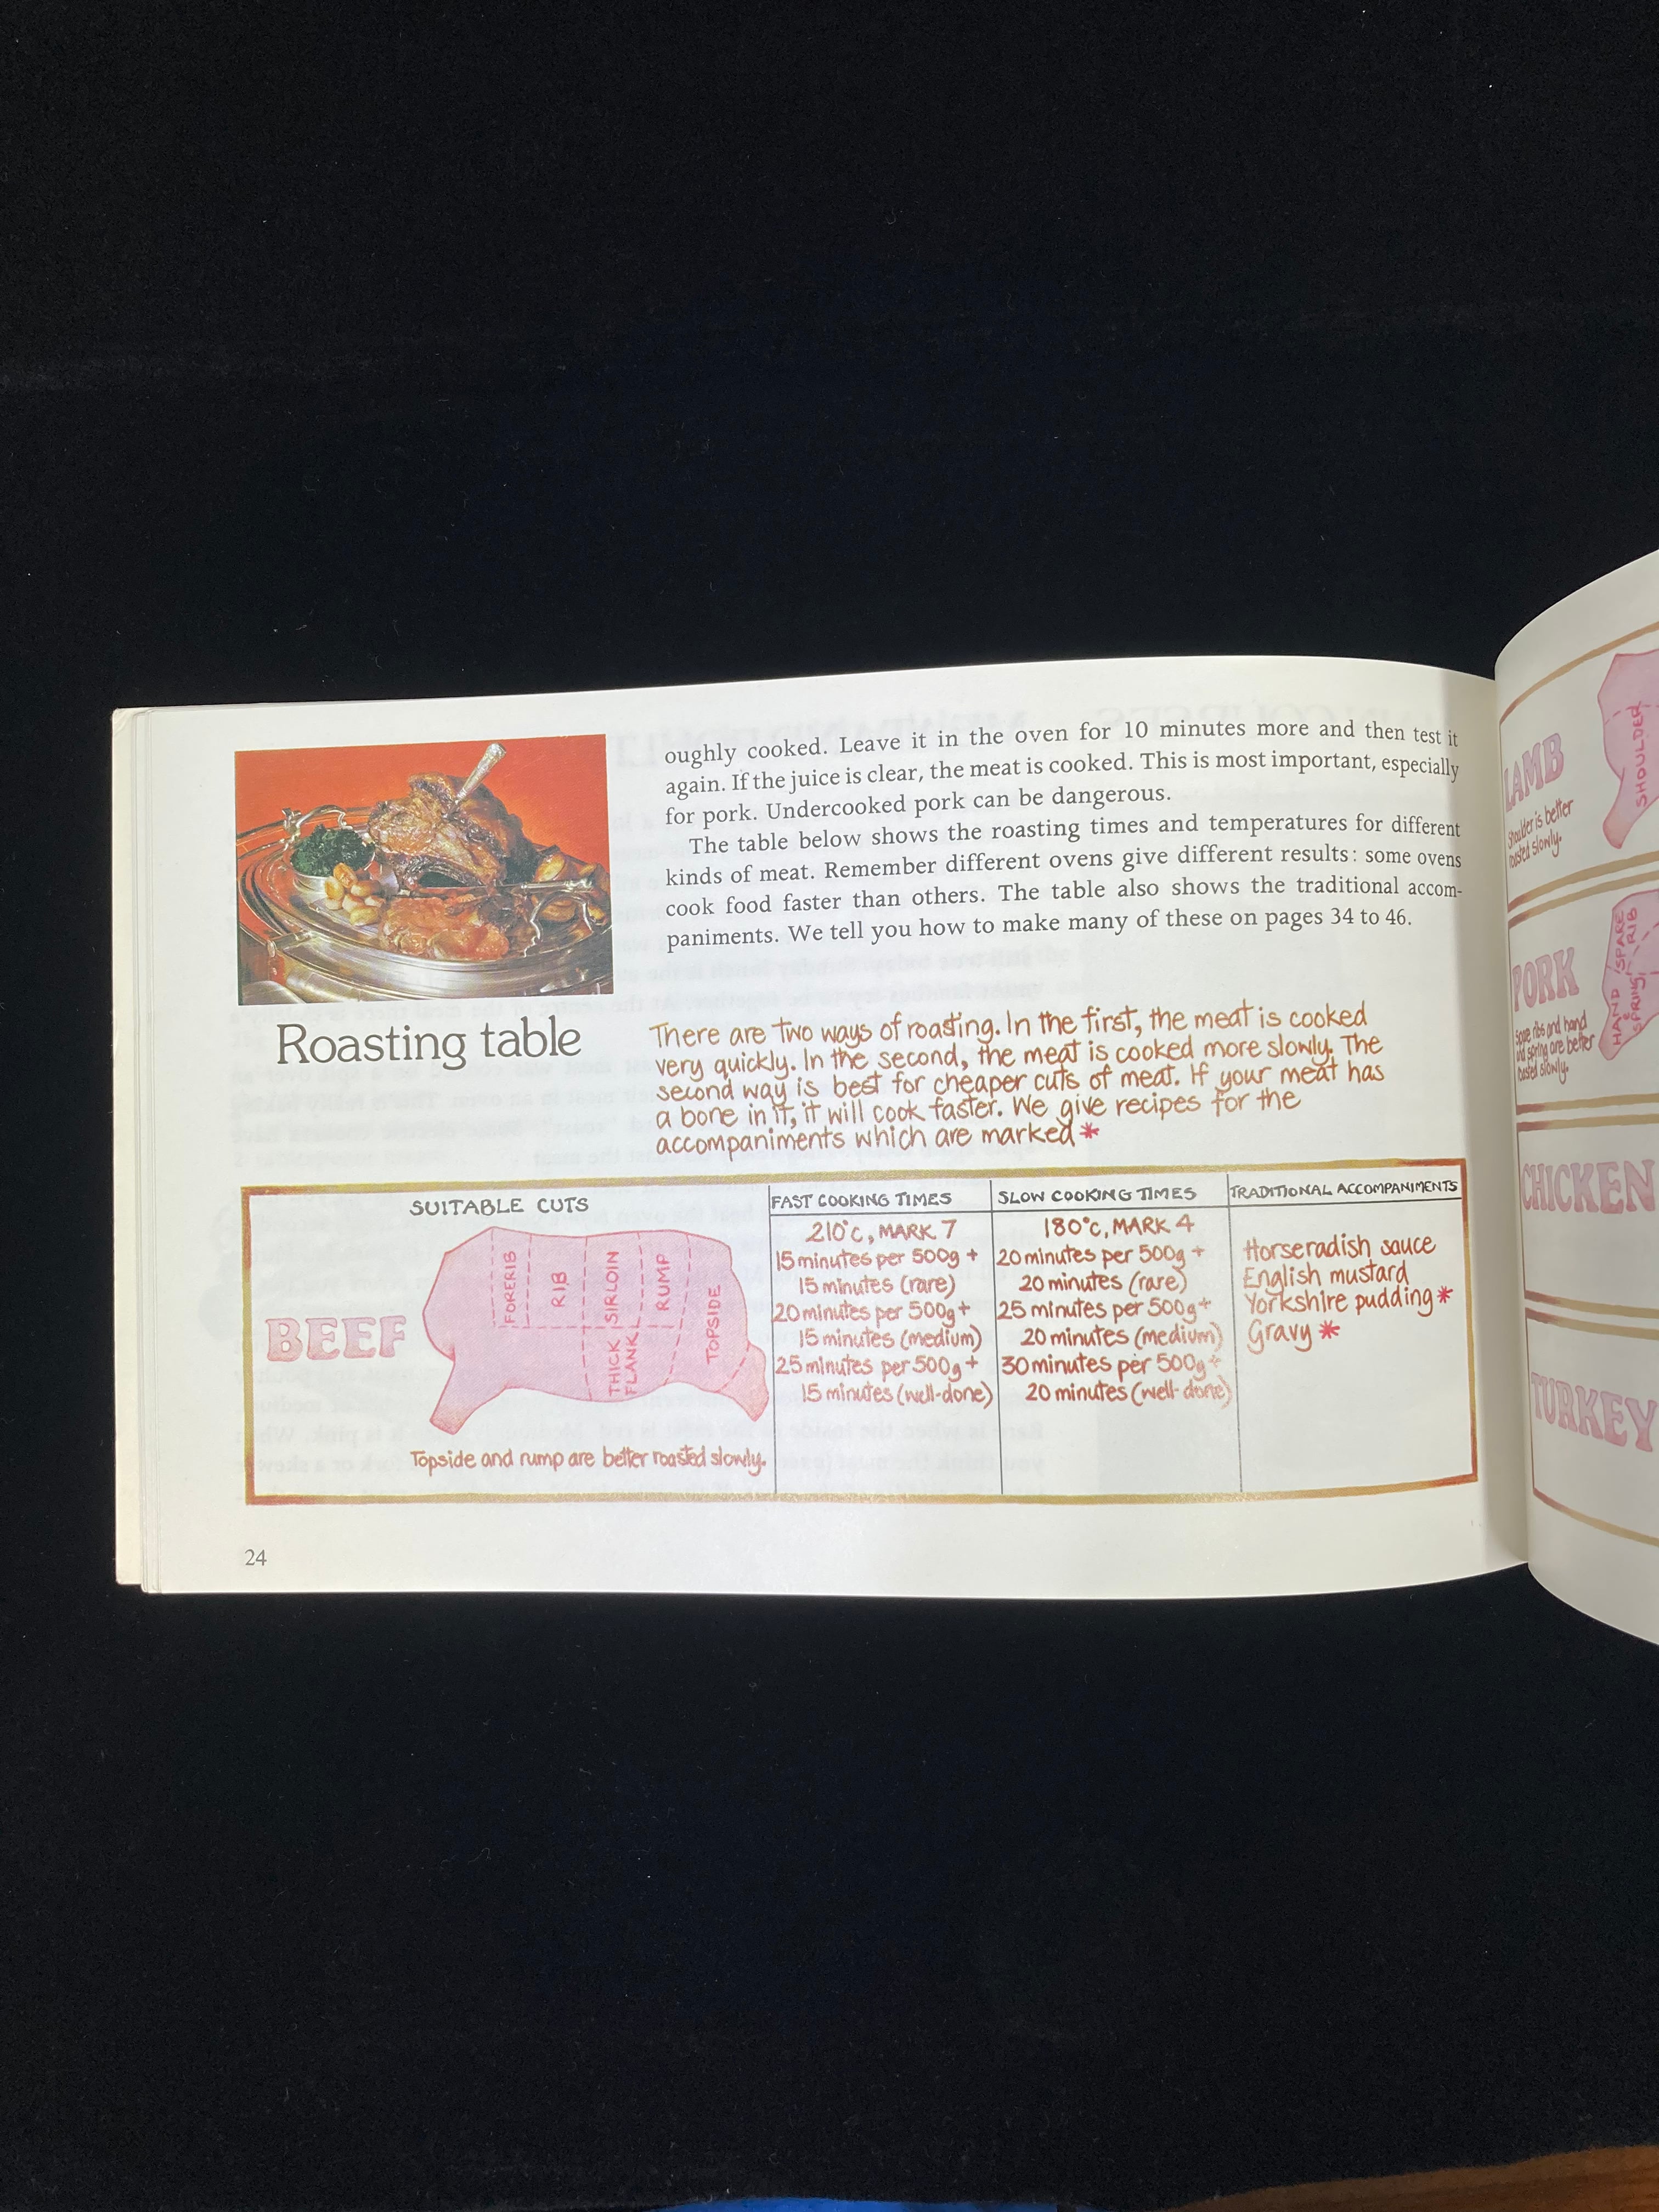 oughly cooked. Leave it in the oven for 10 minutes more and then test it
again. If the juice is clear, the meat is cooked. This is most important, especially
for pork. Undercooked pork can be dangerous.
The table below shows the roasting times and temperatures for different
kinds of meat. Remember different ovens give different results: some ovens
cook food faster than others. The table also shows the traditional accom-
paniments. We tell you how to make many of these on pages 34 to 46.
Roasting table
There are two ways of roasting. In the first, the meat is cooked
very quickly. In the second, the meat is cooked more slowly. The
second way is best for cheaper cuts of meat. If your meat has
a bone in it, it will cook faster. We give recipes for the
accompaniments which are marked *
SUITABLE CUTS
BEEF
FORERIB
RIB
SIRLOIN
RUMP
THICK
FLANK
TOPSIDE
Topside and rump are better roasted slowly.
FAST COOKING TIMES
210°C, MARK 7
15 minutes per 500g +
15 minutes (rare)
20 minutes per 500g +
15 minutes (medium)
25 minutes per 500g +
15 minutes (well-done)
SLOW COOKING TIMES
180°C, MARK 4
20 minutes per 500g +
20 minutes (rare)
25 minutes per 500g +
20 minutes (medium)
30 minutes per 500g +
20 minutes (well-done)
TRADITIONAL ACCOMPANIMENTS
Horseradish sauce
English mustard
Yorkshire pudding *
Gravy *
24
LAMB
Shoulder is better
roasted slowly.
SHOULDER
PORK
Spare ribs and hand
and spring are better
roasted slowly.
SPARE
RIB
HAND
&
SPRING
CHICKEN
TURKEY